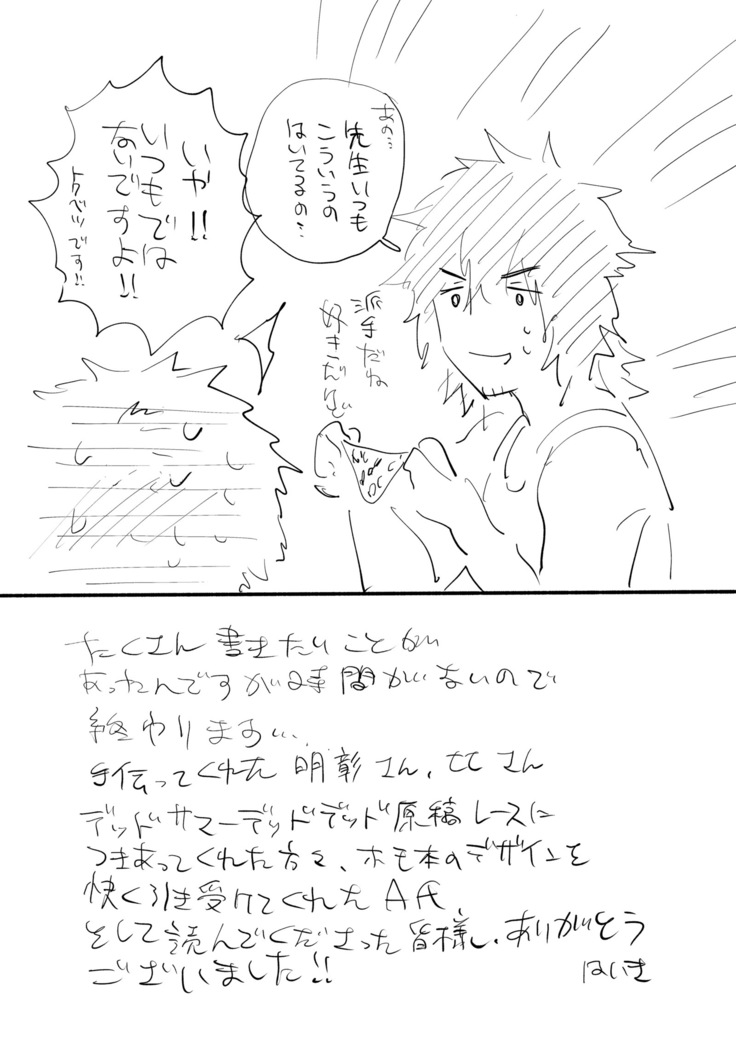 あの…
先生いつも
こういうの
はいてるの?
いや!!
いつもでは
ないですよ!!
トクベツです!!
派手だね
好きだけど
たくさん書きたいことが
あったんですが時間がないので
終わります…
手伝ってくれた明彰さん、ヒヒさん
デッドサマーデッドデッド原稿レースに
つきあってくれた方々、ホモ本のデザインを
快く引き受けてくれたA氏、
そして読んでくださった皆様も、ありがとう
ございました!!
はいき